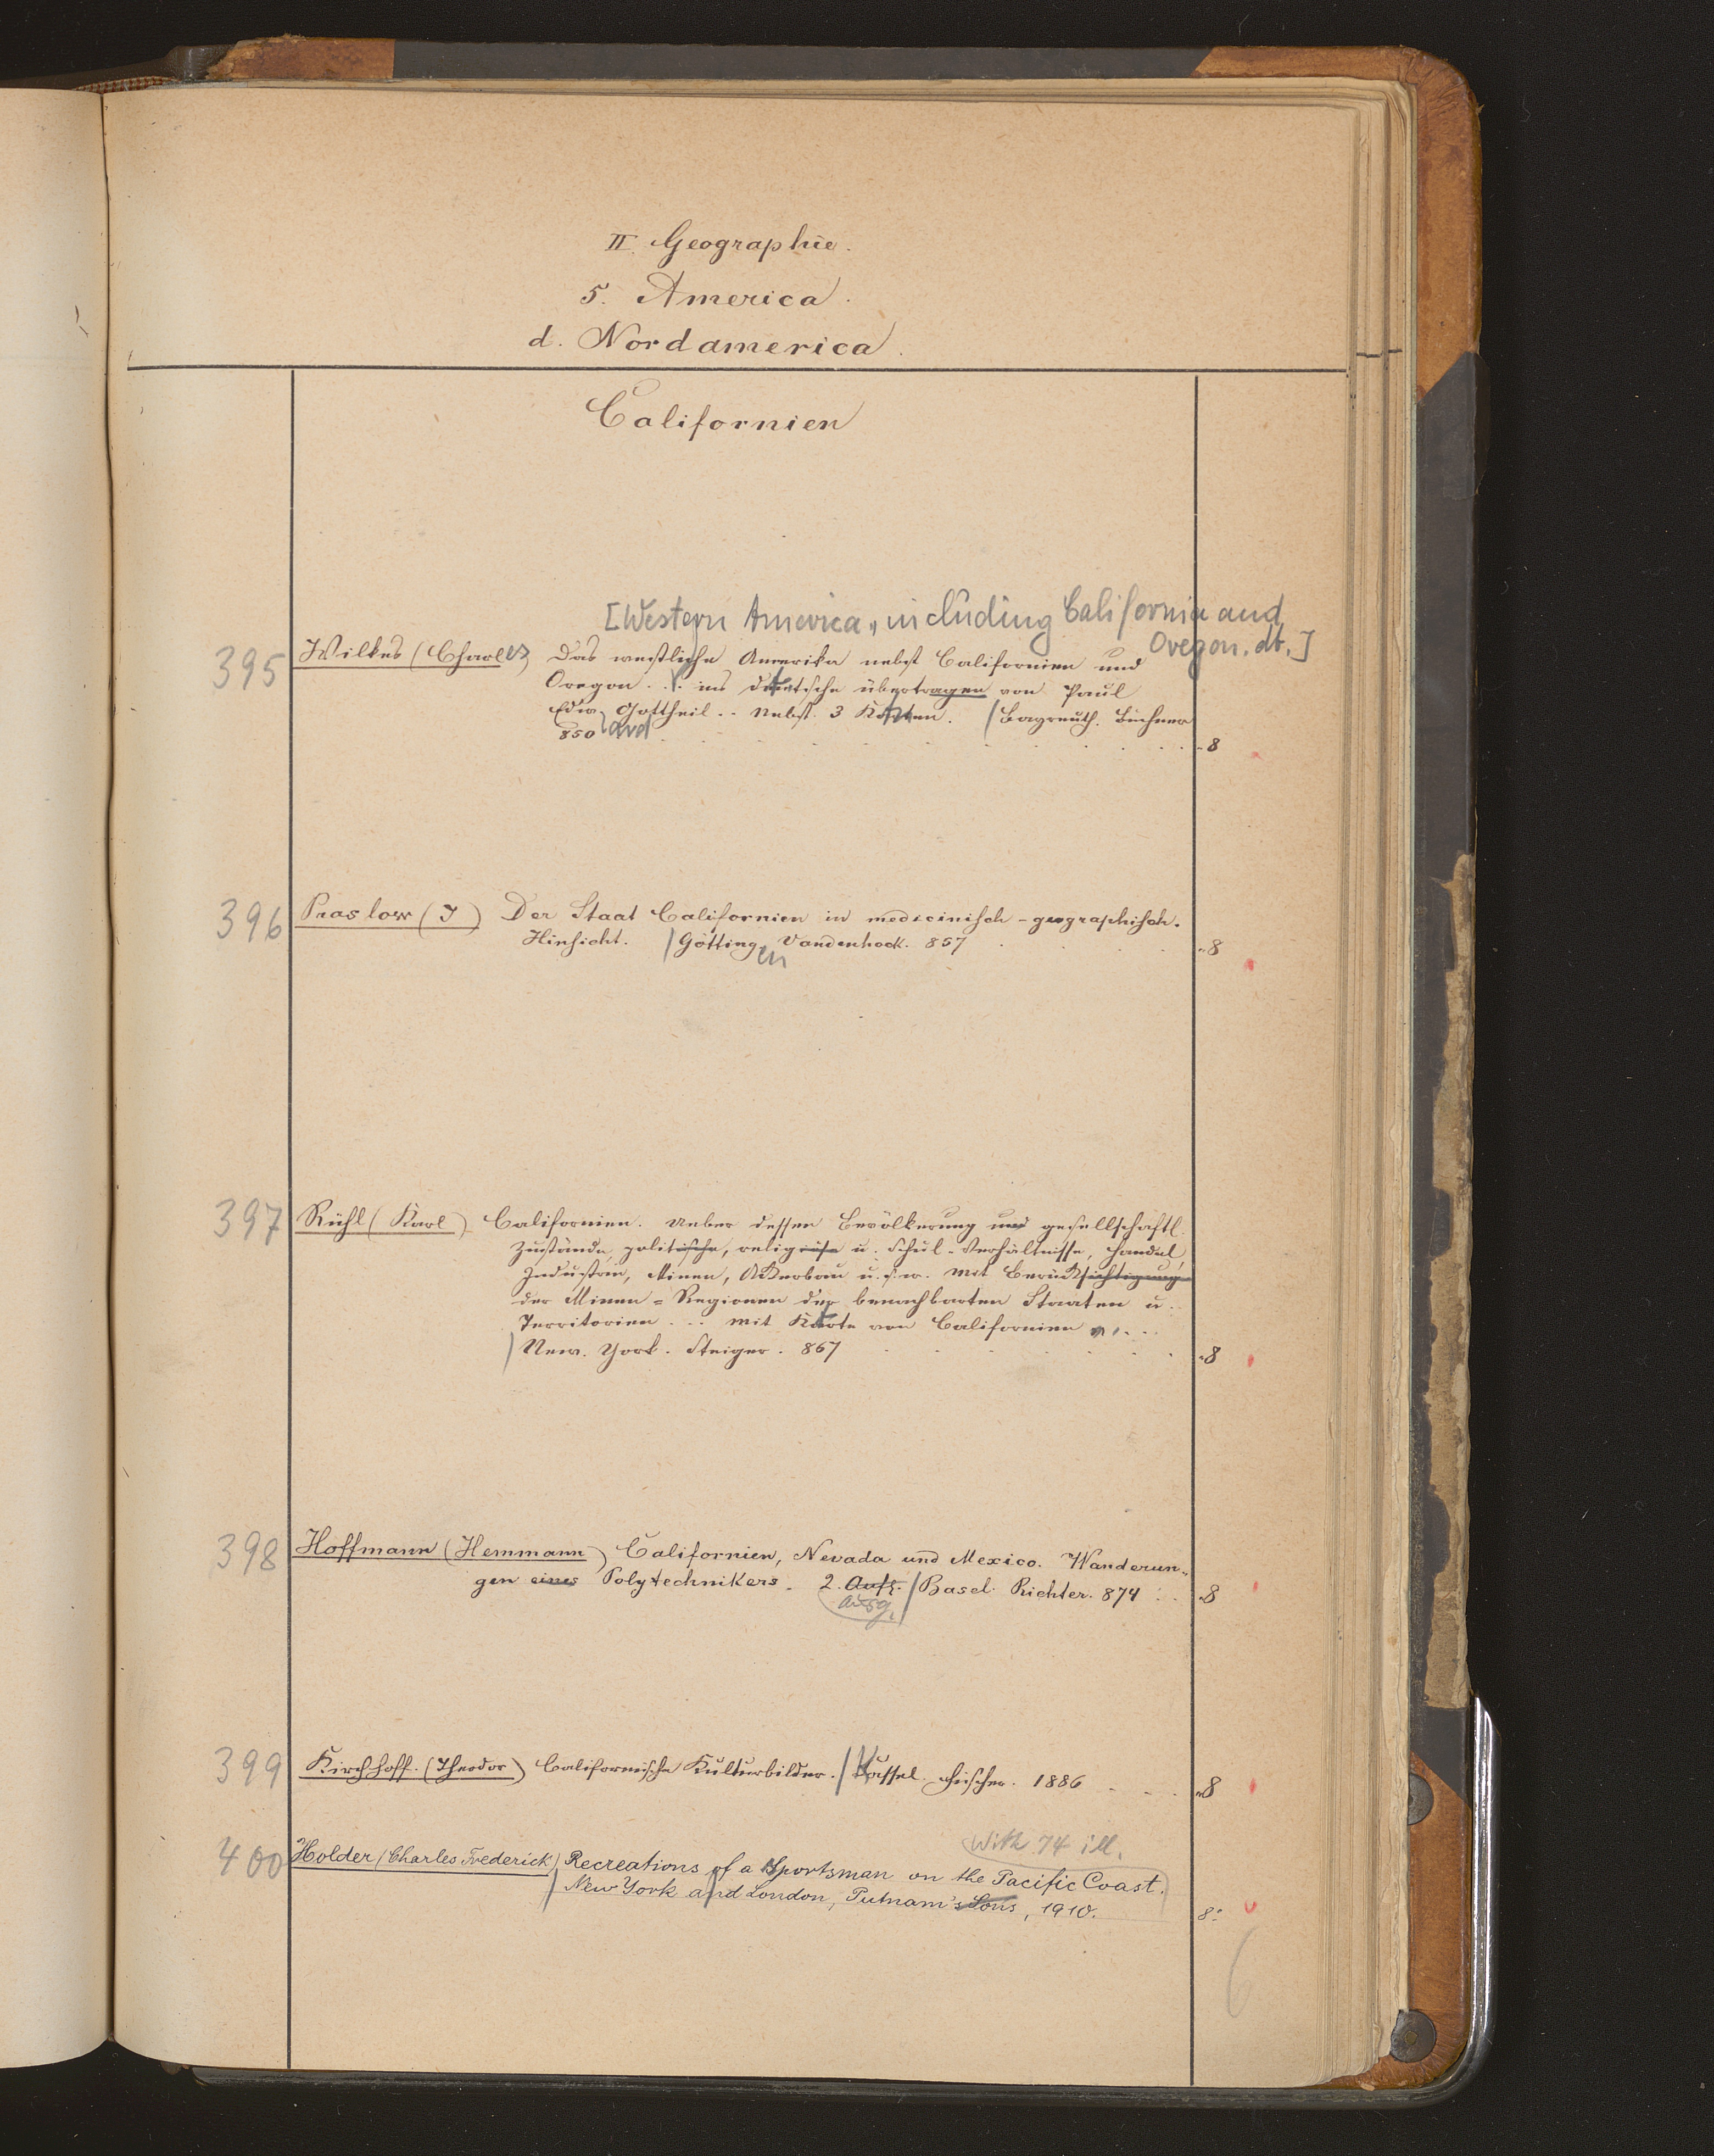 II. Geographie.
5. America.
d. Nordamerica.
Californien
[Western America, including California and
Oregon. dt.]
395 Wilkes (Charles) Das westliche Amerika nebst Californien und
Oregon . . . ins deutsche übertragen von Paul
Edw. Gottheil . . Nebst 3 Karten. / Bayreuth. Buchner
850 . . 8
ard
396 Praslow (J) Der Staat Californien in medicinisch-geographisch.
Hinsicht. / Götting. Vandenhoek. 857 . . 8
en
397 Rühl (Karl) Californien. Ueber dessen Bevölkerung und gesellschaftl.
Zustände, politische, religiöse u. Schul-Verhältnisse, Handel,
Industrie, Minen, Ackerbau u.s.w. Mit Berücksichtigung
der Minen=Regionen der benachbarten Staaten u.
Territorien . . . Mit Karte von Californien . . .
/ New. York. Steiger. 867 . . 8
398 Hoffmann (Hemmann) Californien, Nevada und Mexico. Wanderun„
gen eines Polytechnikers. 2. Aufl. / Basel. Richter. 874 . . 8
Ausg.
399 Kirchhoff. (Theodor) Californische Kulturbilder. / Kassel. Fischer. 1886 . . 8
With 74 ill.
400 Holder (Charles Frederick) Recreations of a Sportsman on the Pacific Coast.
/ New York and London, Putnam's Sons, 1910. 8°
6